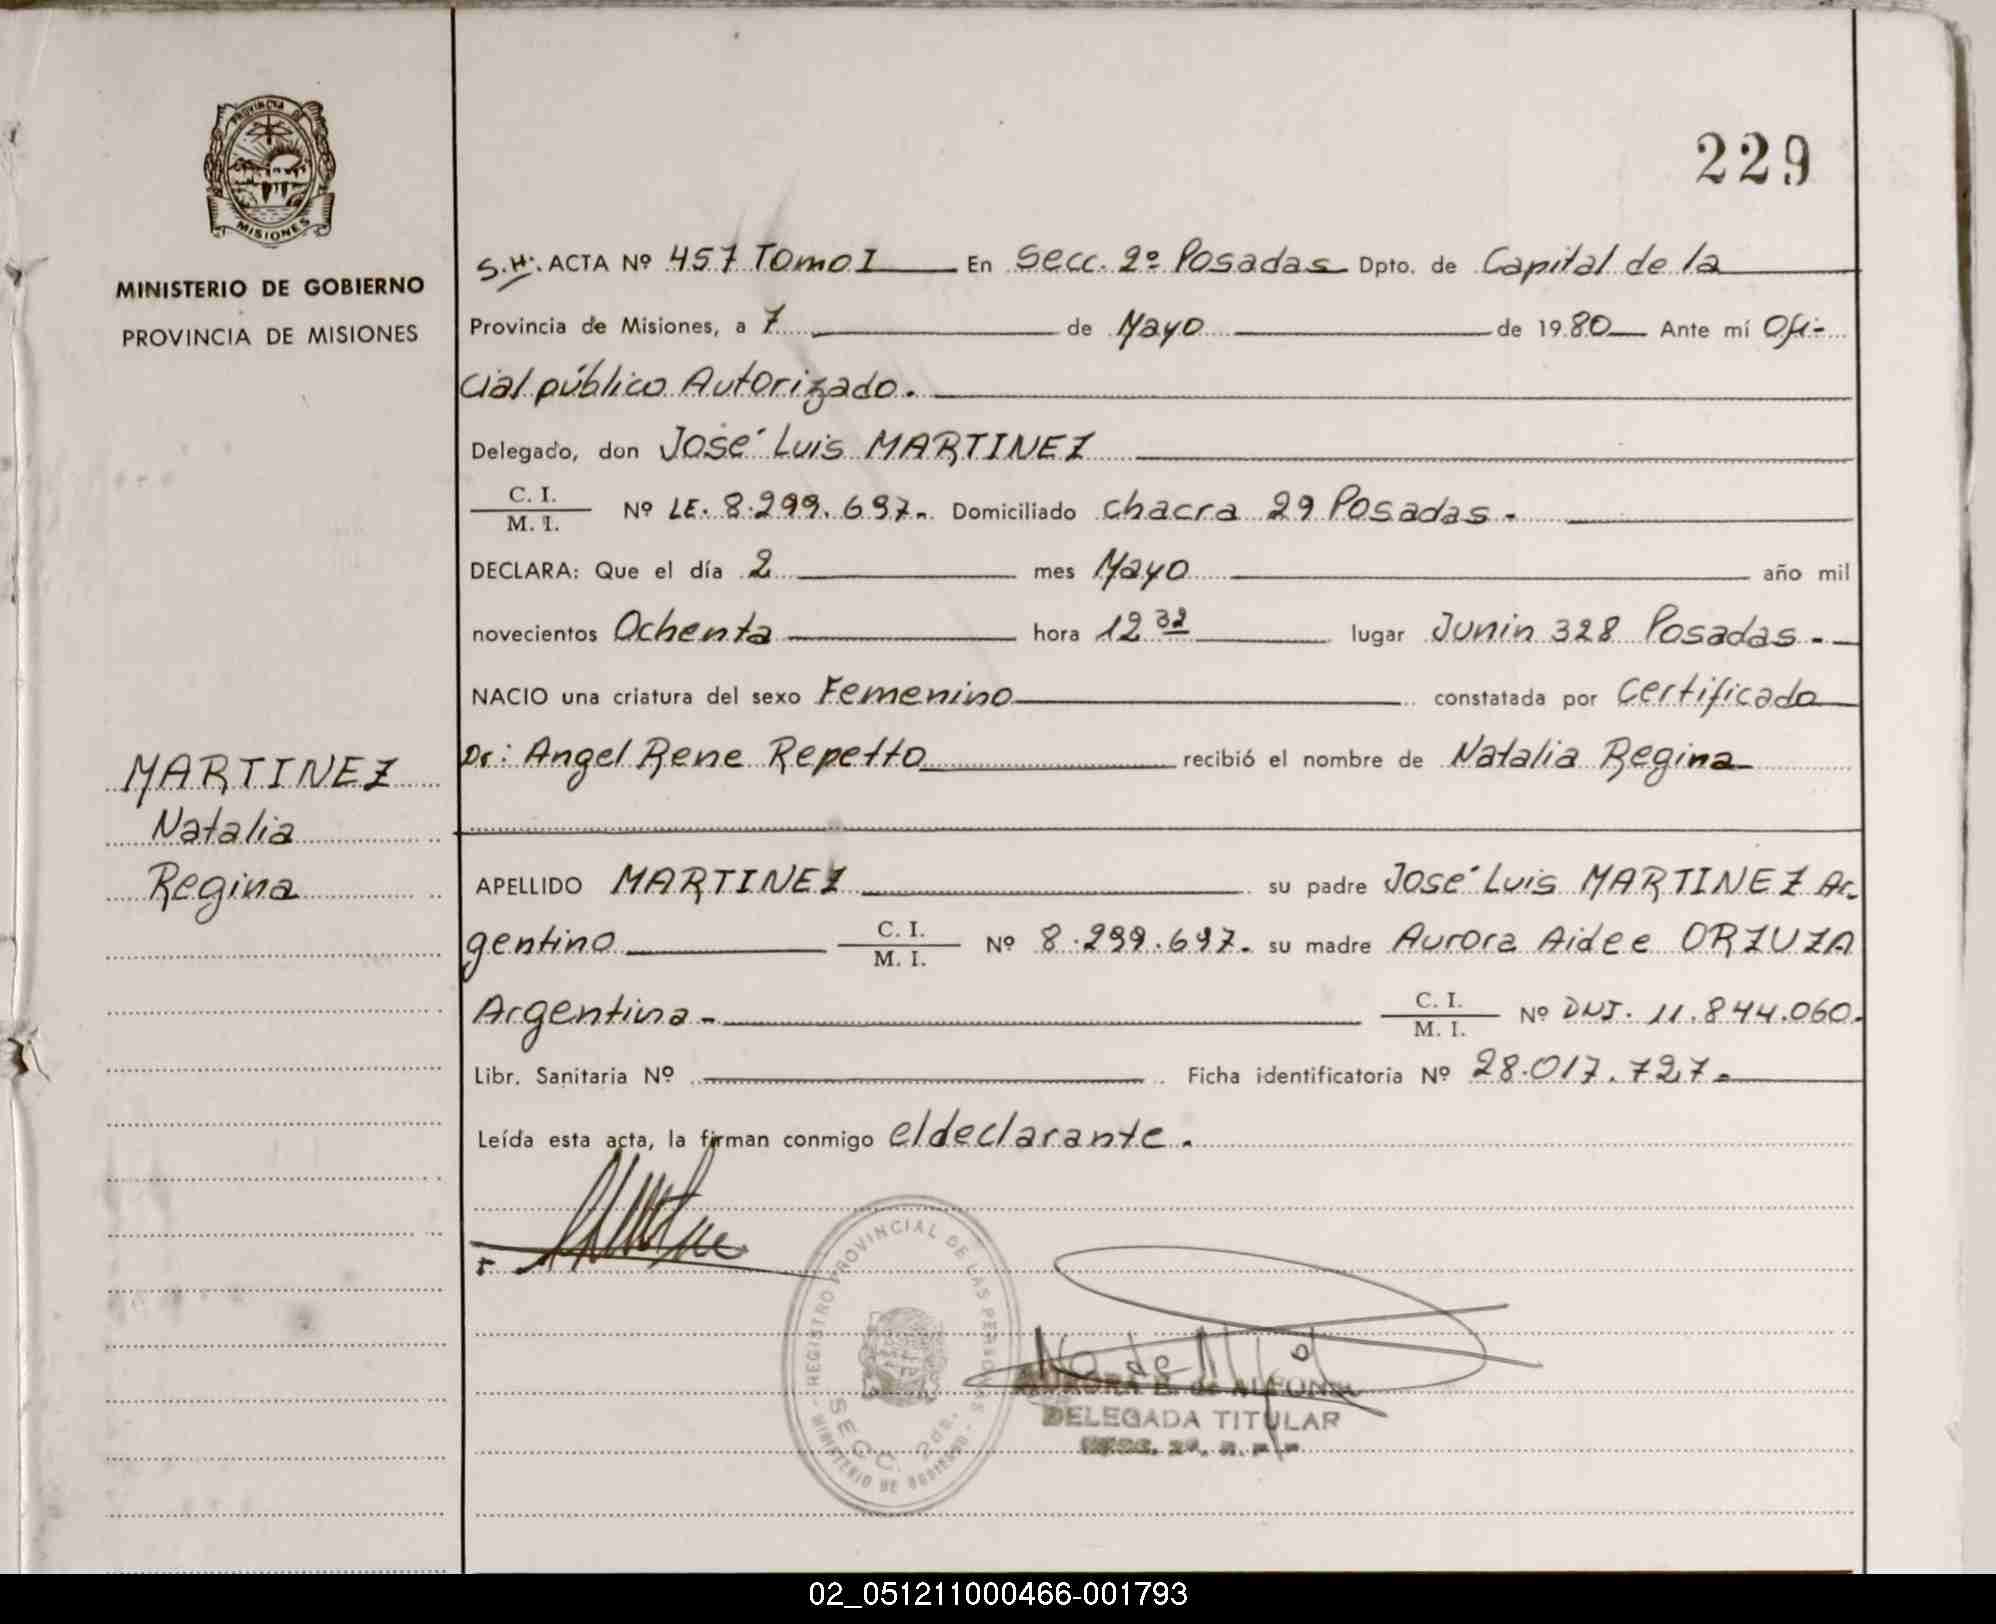 PROVINCIA DE
MISIONES
MINISTERIO DE GOBIERNO
PROVINCIA DE MISIONES
MARTINEZ
Natalia
Regina
229
S.H. ACTA Nº 457 Tomo I En Secc. 2º Posadas Dpto. de Capital de la
Provincia de Misiones, a 7 de Mayo de 1980 Ante mí Ofi-
cial público Autorizado.
Delegado, don José Luis MARTINEZ
C. I.
M. I. Nº LE. 8.299.697. Domiciliado chacra 29 Posadas.
DECLARA: Que el día 2 mes Mayo año mil
novecientos Ochenta hora 12 32 lugar Junin 328 Posadas.
NACIO una criatura del sexo Femenino constatada por Certificado
Dr: Angel Rene Repetto recibió el nombre de Natalia Regina
APELLIDO MARTINEZ su padre José Luis MARTINEZ Ar-
gentino C. I.
M. I. Nº 8.299.697. su madre Aurora Aidee ORZUZA
Argentina C. I.
M. I. Nº DNI. 11.844.060.
Libr. Sanitaria Nº Ficha identificatoria Nº 28.017.727.
Leída esta acta, la firman conmigo el declarante.
REGISTRO PROVINCIAL DE LAS PERSONAS
SECC. 2da.
MINISTERIO DE GOBIERNO
DELEGADA TITULAR
02_051211000466-001793